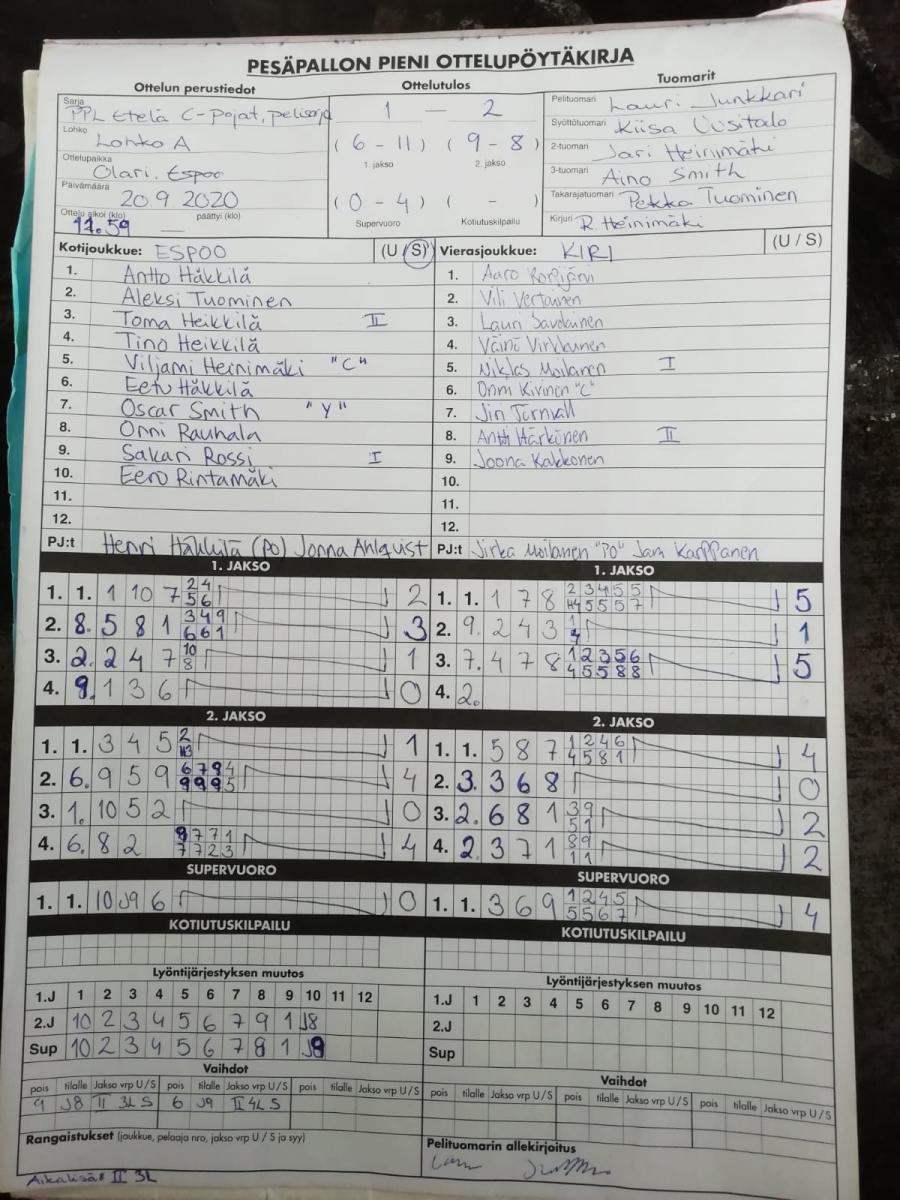 PESÄPALLON PIENI OTTELUPÖYTÄKIRJA
Ottelun perustiedot
Ottelutulos
Tuomarit
Sarja PPL Etelä C-pojat, pelisarja
Lohko Lohko A
Ottelupaikka Olari, Espoo
Päivämäärä 20.9 2020
Ottelu alkoi (klo) päättyi (klo)
11.59 —
1 — 2
( 6 - 11 ) ( 9 - 8 )
1. jakso 2. jakso
( 0 - 4 ) ( - )
Supervuoro Kotiutuskilpailu
Pelituomari Lauri Junkkari
Syöttötuomari Kiisa Uusitalo
2-tuomari Jari Heinimäki
3-tuomari Aino Smith
Takarajatuomari Pekka Tuominen
Kirjuri R. Heinimäki
Kotijoukkue: ESPOO (U/S)
1. Antto Häkkilä
2. Aleksi Tuominen
3. Toma Heikkilä II
4. Tino Heikkilä
5. Viljami Heinimäki "C"
6. Eetu Häkkilä
7. Oscar Smith "Y"
8. Onni Rauhala
9. Sakari Rossi I
10. Eero Rintamäki
11.
12.
PJ:t Henri Häkkilä (PO) Jonna Ahlquist
Vierasjoukkue: KIRI (U/S)
1. Aaro
2. Vili Vertainen
3. Lauri Savolainen
4. Väinö Virkkunen
5. Niklas Moilanen I
6. Onni Kivinen "C"
7. Jin Törnvall
8. Antti Härkönen II
9. Joona Kakkonen
10.
11.
12.
PJ:t Jirka Moilanen "PO" Jani Karppanen
1. JAKSO
1. 1. 1 10 7 2 4 2
5 6
2. 8. 5 8 1 3 4 9 3
6 6 1
3. 2. 2 4 7 10 1
8
4. 9. 1 3 6 0
1. JAKSO
1. 1. 1 7 8 2 3 4 5 5 5
4 5 5 5 7
2. 9. 2 4 3 1 1
4
3. 7. 4 7 8 1 2 3 5 6 5
4 5 5 8 8
4. 2.
2. JAKSO
1. 1. 3 4 5 2 1
2. 6. 9 5 9 6 7 8 4 4
9 9 9 5
3. 1. 10 5 2 0
4. 6. 8 2 9 7 7 1 4
7 7 2 3
2. JAKSO
1. 1. 5 8 7 1 2 4 6 4
4 5 8 1
2. 3. 3 6 8 0
3. 2. 6 8 1 3 9 2
5 1
4. 2. 3 7 1 8 9 2
1 1
SUPERVUORO
1. 1. 10 J9 6 0
SUPERVUORO
1. 1. 3 6 9 1 2 4 5 4
5 5 6 7
KOTIUTUSKILPAILU
KOTIUTUSKILPAILU
Lyöntijärjestyksen muutos
1.J 1 2 3 4 5 6 7 8 9 10 11 12
2.J 10 2 3 4 5 6 7 9 1 J8
Sup 10 2 3 4 5 6 7 8 1 J9
Lyöntijärjestyksen muutos
1.J 1 2 3 4 5 6 7 8 9 10 11 12
2.J
Sup
Vaihdot
pois tilalle Jakso vrp U/S pois tilalle Jakso vrp U/S pois tilalle Jakso vrp U/S
9 J8 II 3L S 6 J9 II 4L S
Vaihdot
pois tilalle Jakso vrp U/S pois tilalle Jakso vrp U/S pois tilalle Jakso vrp U/S
Rangaistukset (joukkue, pelaaja nro, jakso vrp U / S ja syy)
Aikalisä: II 3L
Pelituomarin allekirjoitus